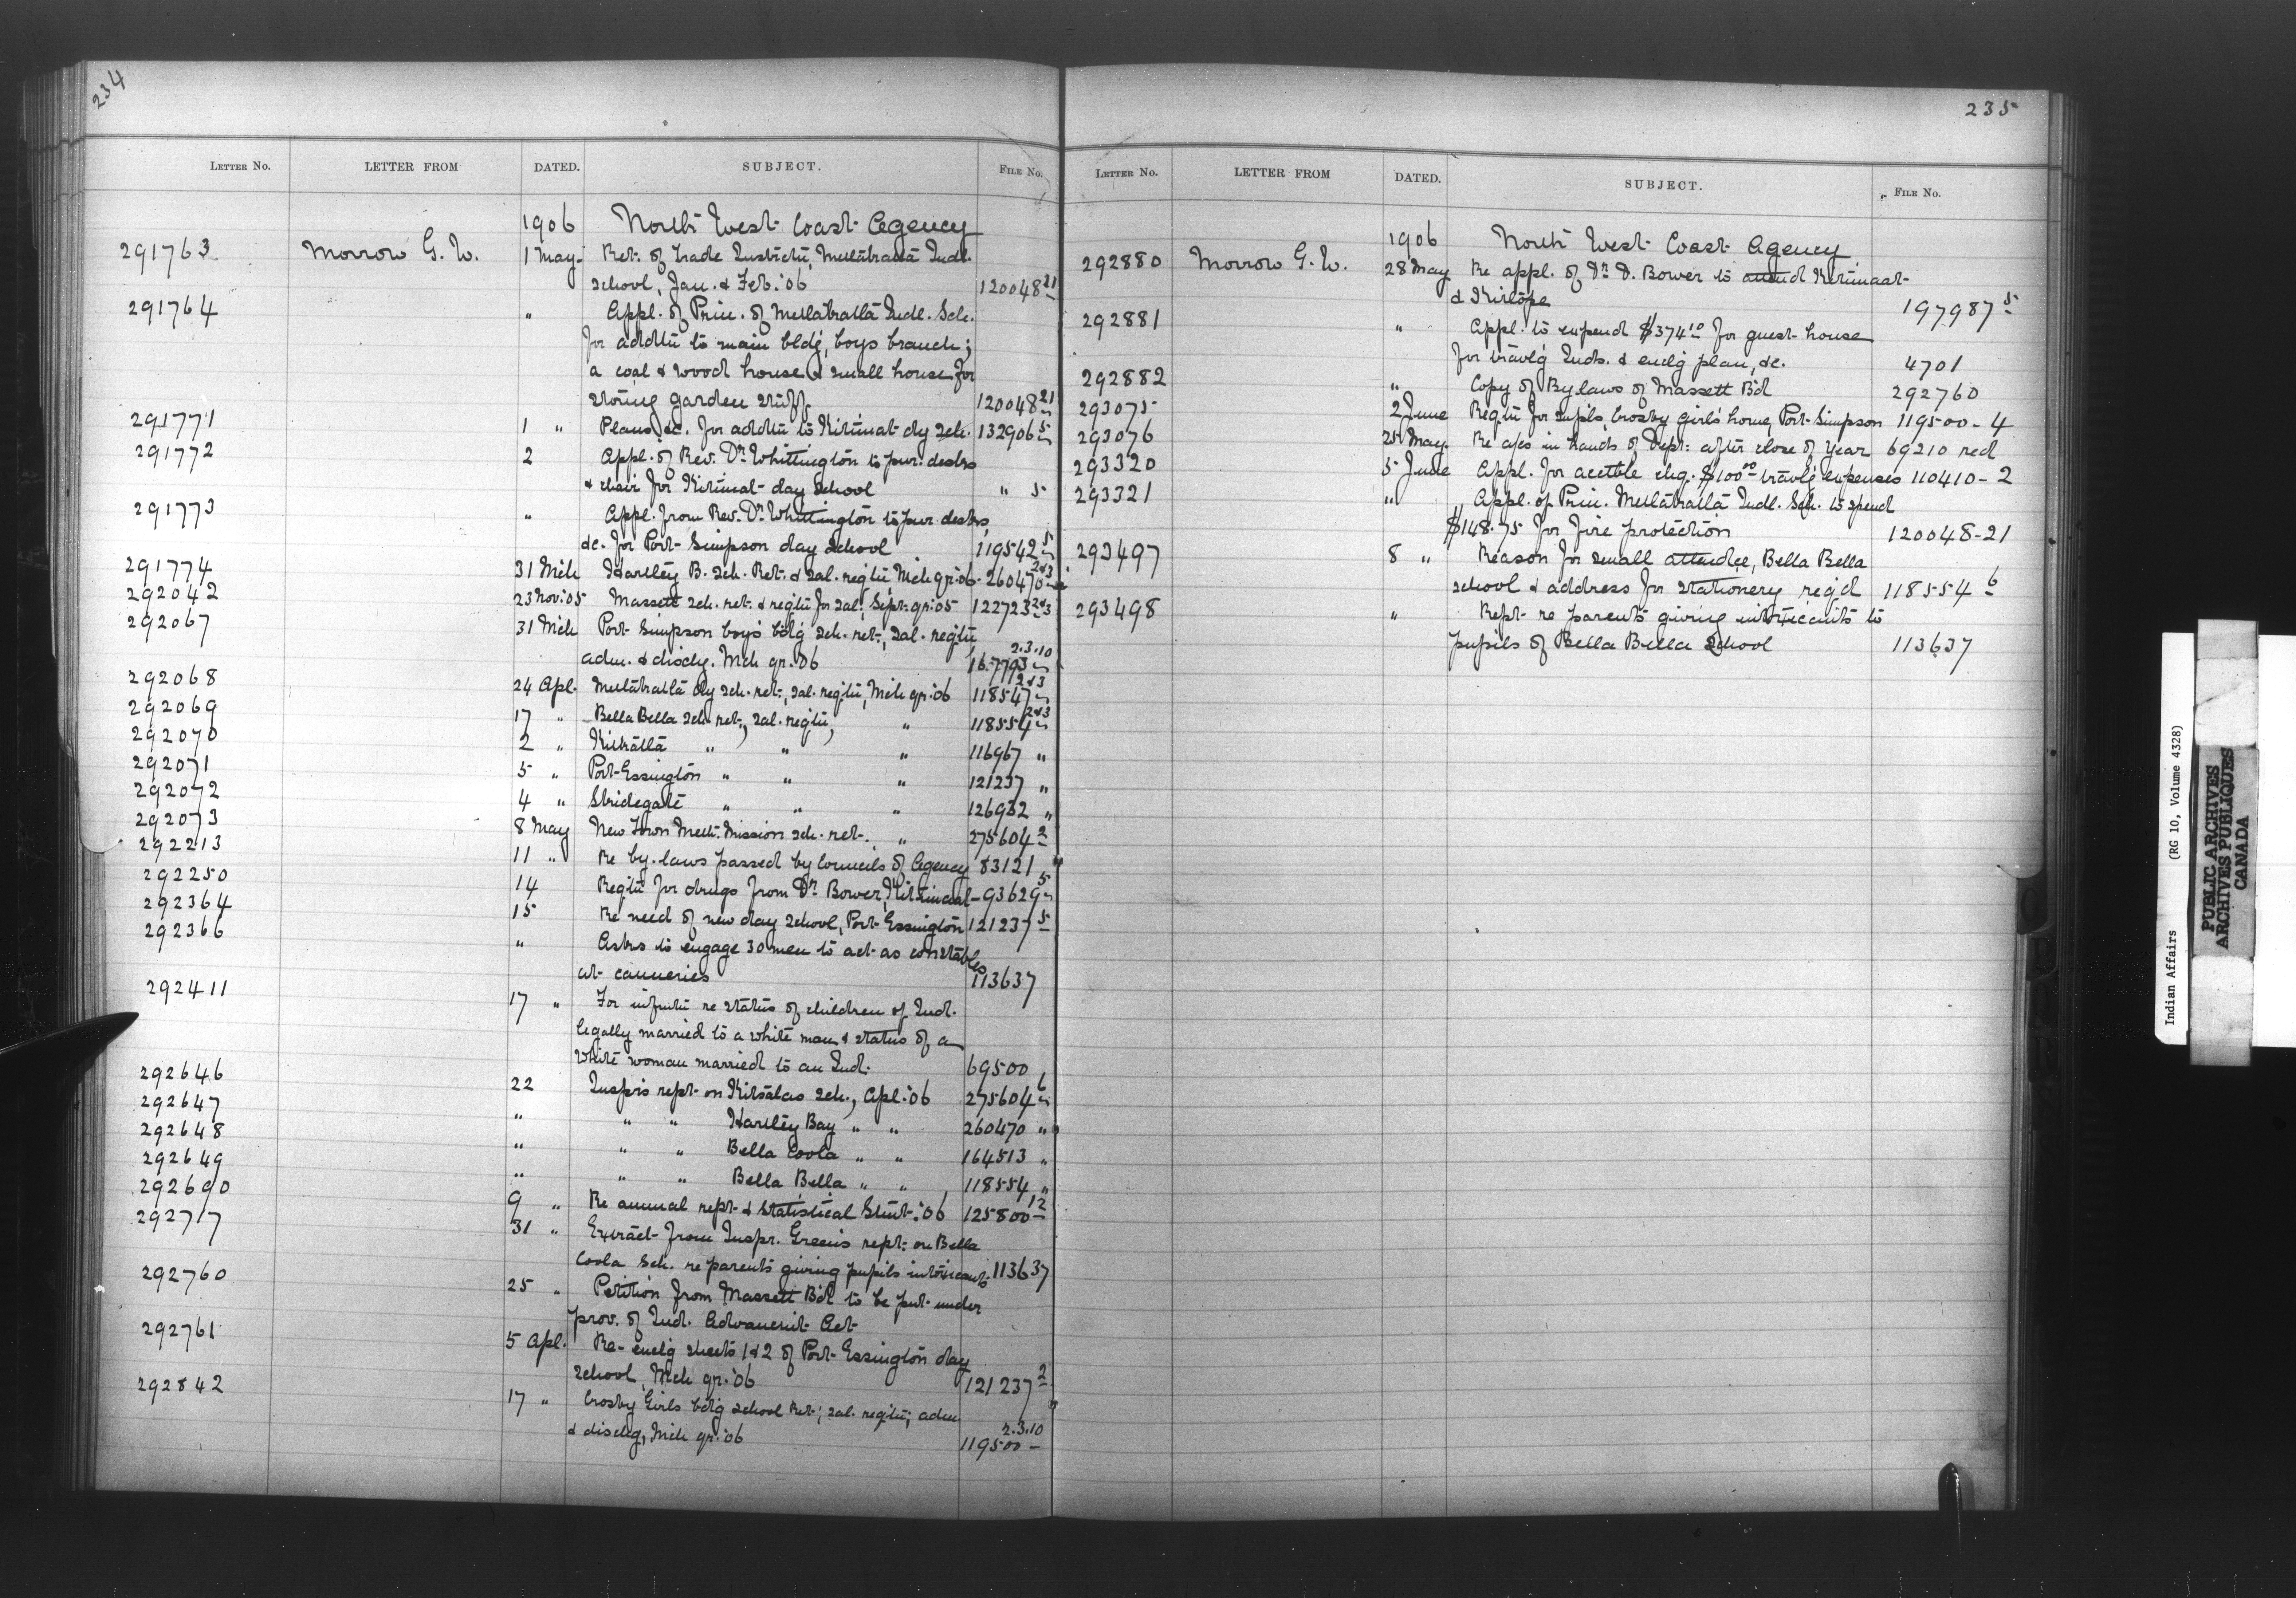 234
LETTER NO. LETTER FROM DATED. SUBJECT. FILE NO.
1906 North West Coast Agency
291763 Morrow G. W. 1 May Ret. of Trade Instrctn, Metlakatla Indl.
School, Jan. & Feb. '06 120048 21
291764 " Appl. of Prin. of Metlakatla Indl. Sch.
for addtn to main bldg, boys branch;
a coal & wood house & small house for
storing garden stuff 120048 21
291771 1 " Plans, &c. for addtn to Kitimat dy sch. 132906 5
291772 2 Appl. of Rev. Dr. Whittington to pur. desks
& chair for Kitimat day school " 5
291773 " Appl. from Rev. Dr. Whittington to pur. desks,
&c. for Port Simpson day school 119542 5
291774 31 Mch Hartley B. Sch. Ret. & sal. reqtn, Mch qr. '06 260470 2&3
292042 23 Nov. '05 Massett sch. ret. & reqtn for sal. Sept. qr. '05 122723 2&3
292067 31 Mch Port Simpson boys bdg sch. ret., sal. reqtn
adm. & dischg. Mch qr. '06 167793 2.3.10
292068 24 Apl. Metlakatla dy sch. ret., sal. reqtn, Mch qr. '06 118547 2&3
292069 17 " Bella Bella sch. ret., sal. reqtn, " 118554 2&3
292070 2 " Kitkatla " " " 116967 "
292071 5 " Port Essington " " " 121237 "
292072 4 " Skidegate " " " 126932 "
292073 8 May New Town Meth. Mission sch. ret. " 275604 2
292213 11 " Re by-laws passed by Councils of Agency 83121
292250 14 Reqtn for drugs from Dr. Bower, Kitimaat 93629 5
292364 15 Re need of new day school, Port Essington 121237 5
292366 " Asks to engage 30 men to act as constables
at canneries 113637
292411 17 " For infmtn re status of children of Ind.
legally married to a white man & status of a
white woman married to an Ind. 69500
292646 22 Inspr's rept on Kitsalas Sch., Apl. '06 275604 6
292647 " " " Hartley Bay " " 260470 "
292648 " " " Bella Coola " " 164513 "
292649 " " " Bella Bella " " 118554 "
292690 9 " Re annual rept & statistical Stmt. '06 125800 12
292717 31 " Extract from Inspr. Green's rept. on Bella
Coola Sch. re parents giving pupils intoxicants 113637
292760 25 " Petition from Massett Bd to be put under
prov. of Ind. Advancmt Act
292761 5 Apl. Re enclg sheets 1&2 of Port Essington day
school, Mch qr. '06 121237 2
292842 17 " Crosby Girls bdg school ret., sal. reqtn, adm
& dischg, Mch qr. '06 119500 2.3.10
235
LETTER NO. LETTER FROM DATED. SUBJECT. FILE NO.
1906 North West Coast Agency
292880 Morrow G. W. 28 May Re appl. of Dr. D. Bower to attend Kitimaat
& Kitlope 197987 5
292881 " Appl. to expend $374 10 for guest house
for travlg Inds. & enclg plan, &c. 4701
292882 " Copy of By laws of Massett Bd 292760
293075 2 June Reqtn for supls, Crosby girls home, Port Simpson 119500-4
293076 25 May Re a/cs in hands of Dept. after close of Year 69210 red
293320 5 June Appl. for acctble chq. $100 00 travlg expenses 110410-2
293321 " Appl. of Prin. Metlakatla Indl. Sch. to spend
$148.75 for fire protection 120048-21
293497 8 " Reason for small attendce, Bella Bella
school & address for stationery reqd 118554 6
293498 " Rept re parents giving intoxicants to
pupils of Bella Bella School 113637
Indian Affairs (RG 10, Volume 4328)
PUBLIC ARCHIVES
ARCHIVES PUBLIQUES
CANADA